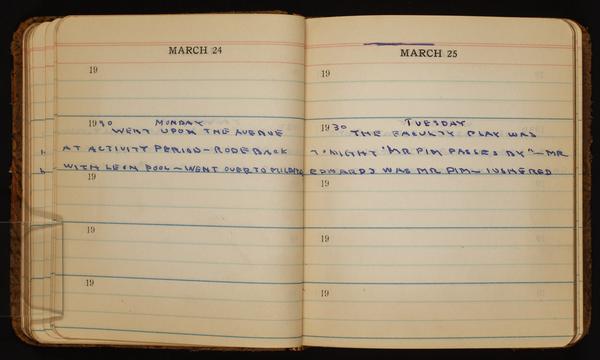 MARCH 24
19
1930 MONDAY
WENT UPON THE AVENUE
AT ACTIVITY PERIOD - RODE BACK
WITH LEON POOL - WENT OVER TO
19
19
19
MARCH 25
19
1930 TUESDAY
THE FACULTY PLAY WAS
TONIGHT "MR PIM PASSES BY" - MR
EDWARDS WAS MR PIM - I USHERED
19
19
19